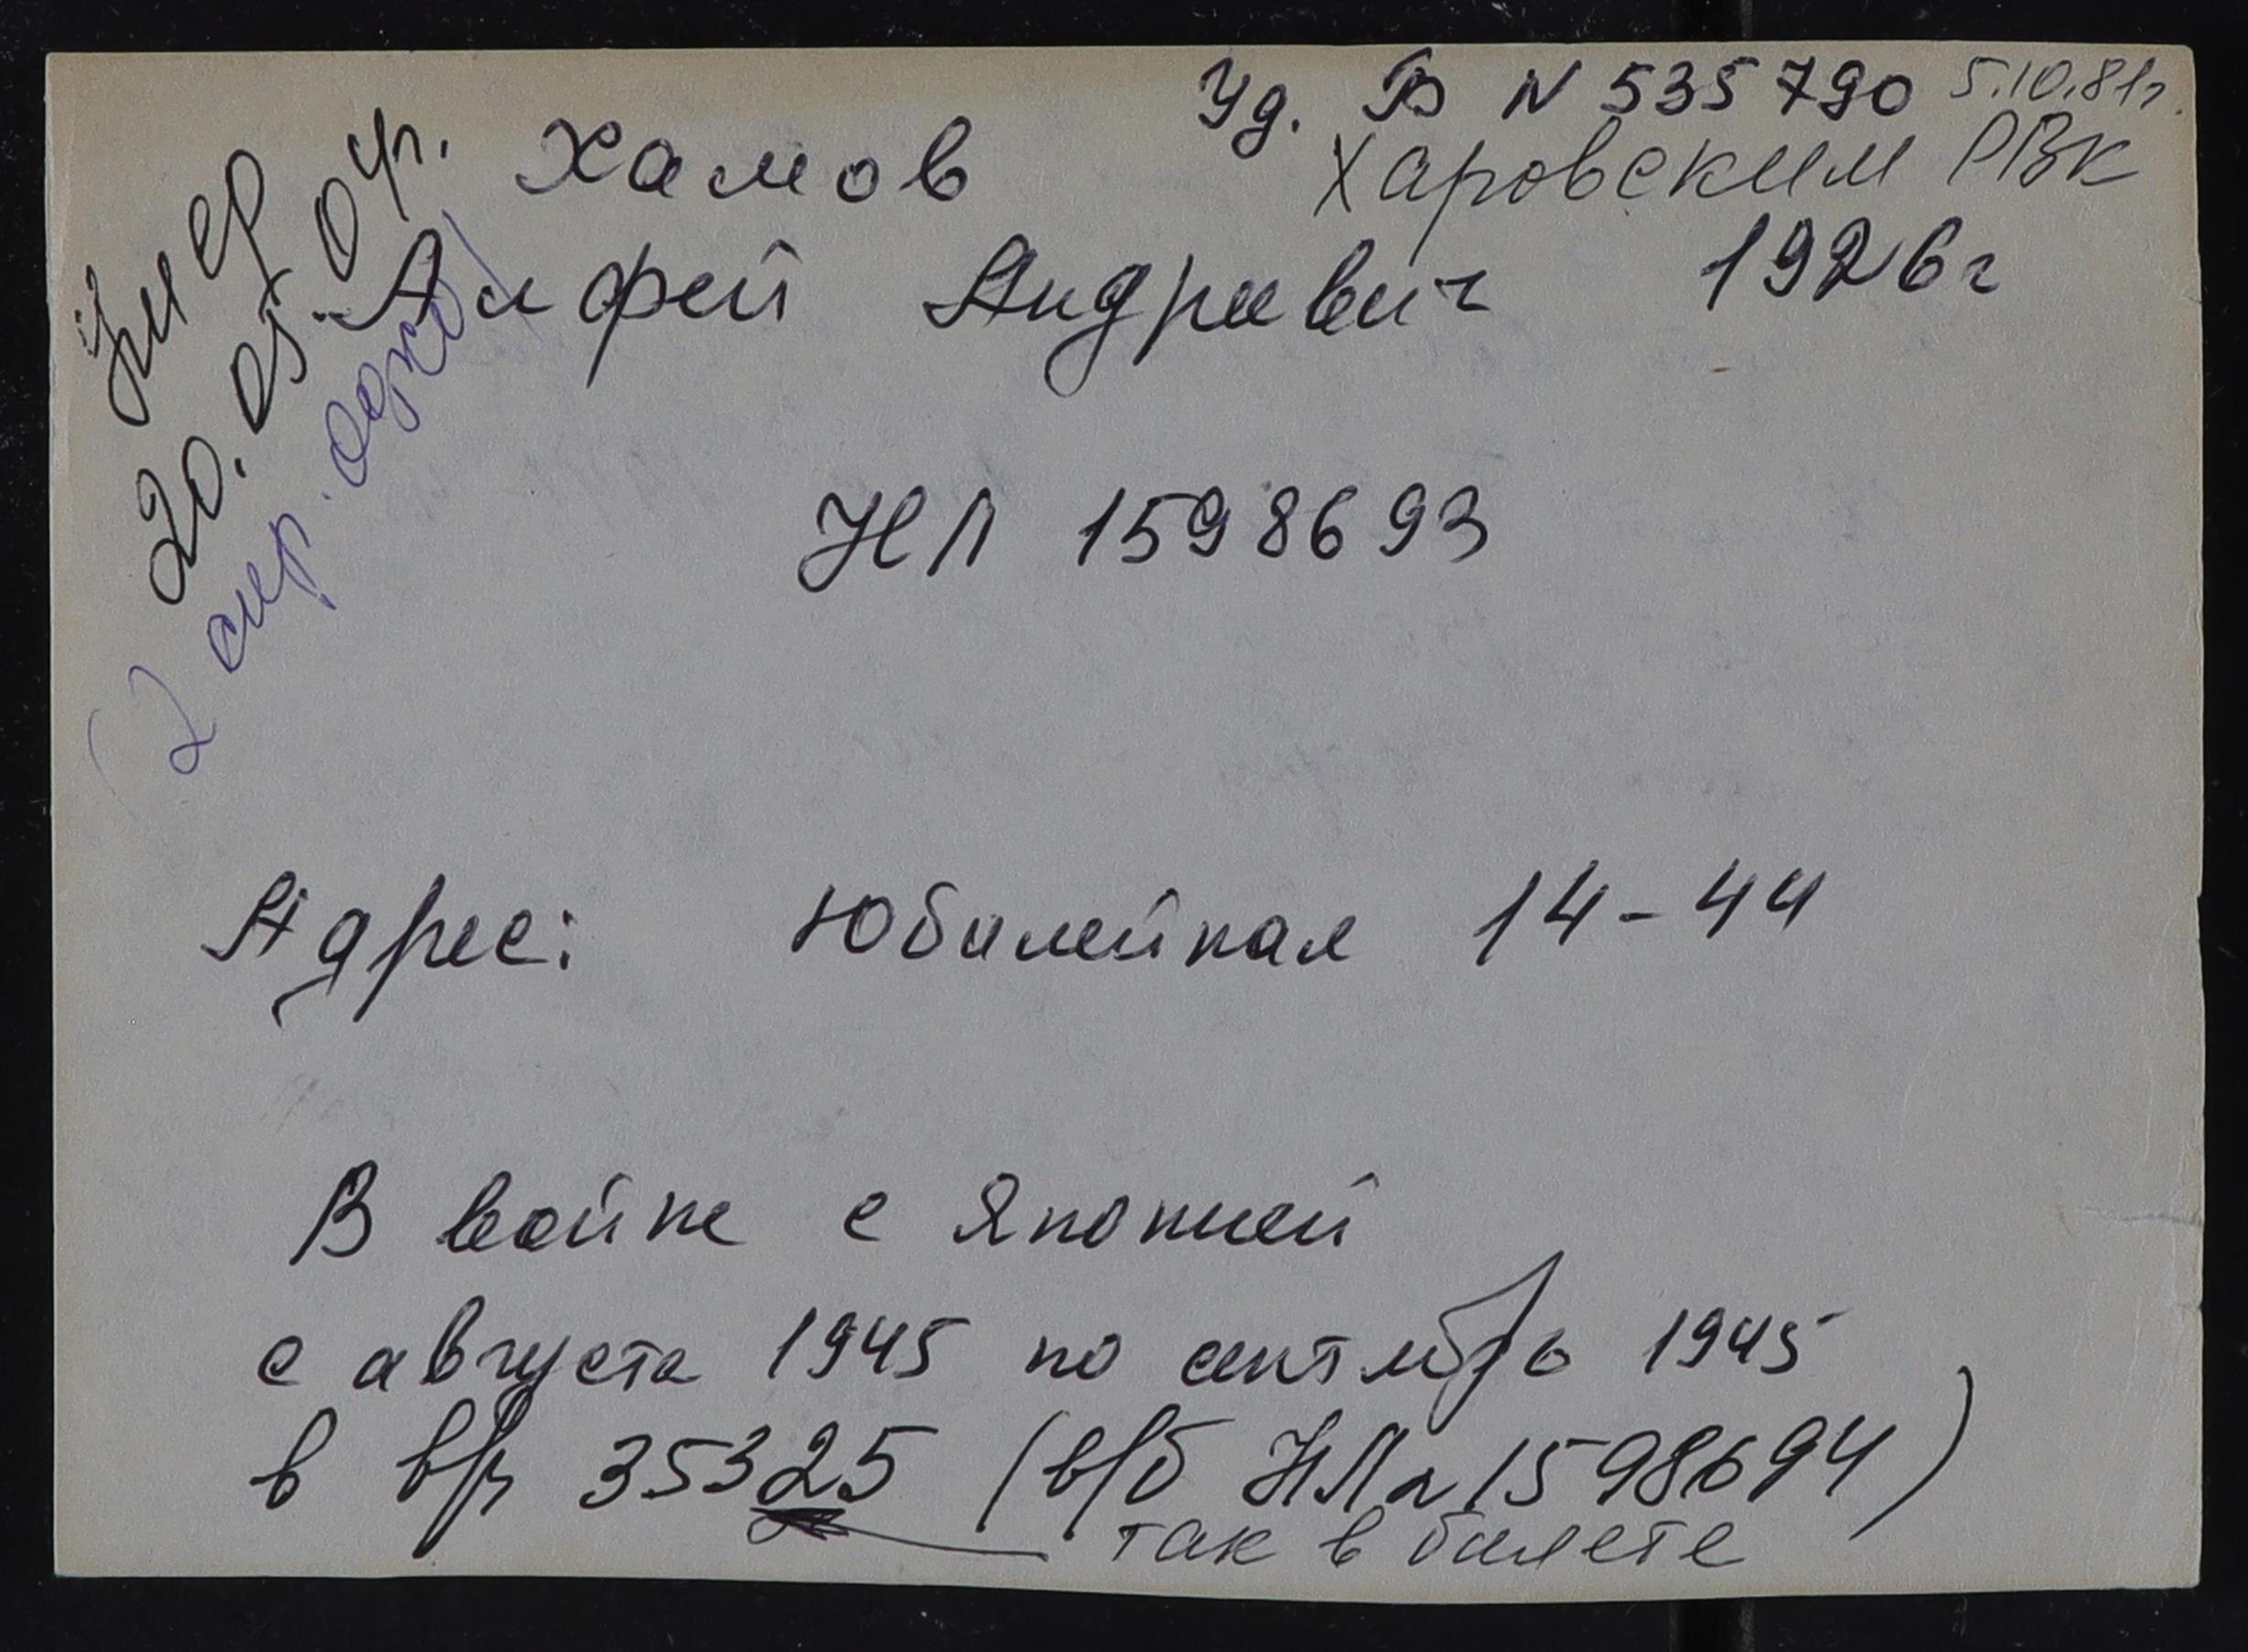 Уд. В N 535790 5.10.81г.
Харовским РВК
Хамов
Алфей Андреевич 1926г
умер
20.05.04г.
НЛ 1598693
Адрес: Юбилейная 14-44
В войне с Японией
с августа 1945 по сентябрь 1945
в в/ч 35325 (в/б НЛ N 1598694)
так в билете